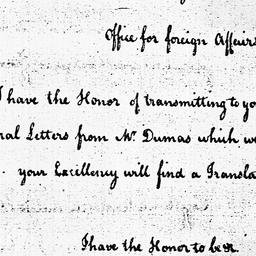 Office for foreign Affairs
I have the Honor of transmitting to yo
ral Letters from Mr. Dumas which w
your Excellency will find a Transla
I have the Honor to be &c.